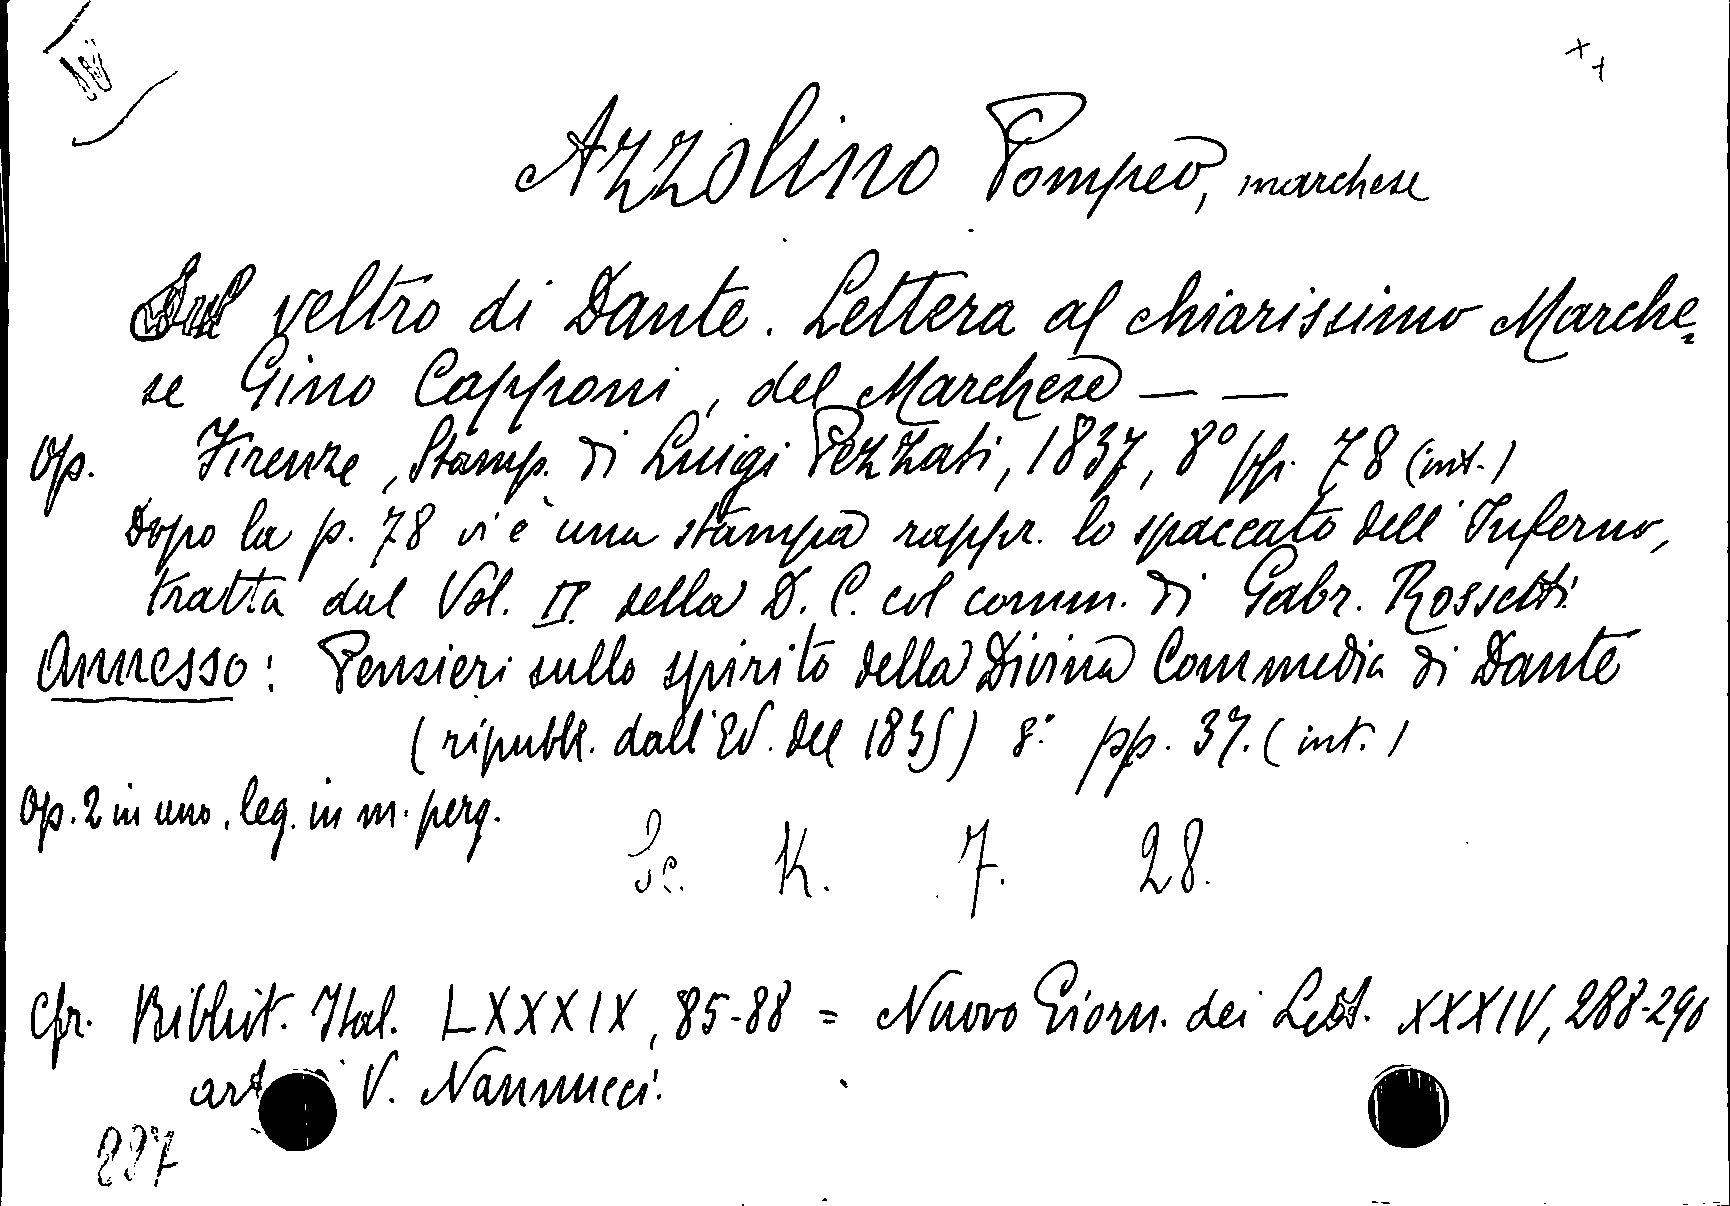 Azzolino Pompeo, marchese
Sul veltro di Dante. Lettera al chiarissimo Marche=
se Gino Capponi, del Marchese — —
Op. Firenze, Stamp. di Luigi Pezzati, 1837, 8° pp. 78 (int.)
Dopo la p. 78 vi è una stampa rappr. lo spaccato dell'Inferno,
tratta dal Vol. II della D. C. col comm. di Gabr. Rossetti.
Annesso: Pensieri sullo spirito della Divina Commedia di Dante
(ripubbl. dall'Ed. del 1835) 8° pp. 37. (int.)
Op. 2 in uno, leg. in m. perg.
K. 7. 28.
Cfr. Bibliot. Ital. LXXXIX, 85-88 = Nuovo Giorn. dei Lett. XXXIV, 288-290
art. V. Nannucci.
887